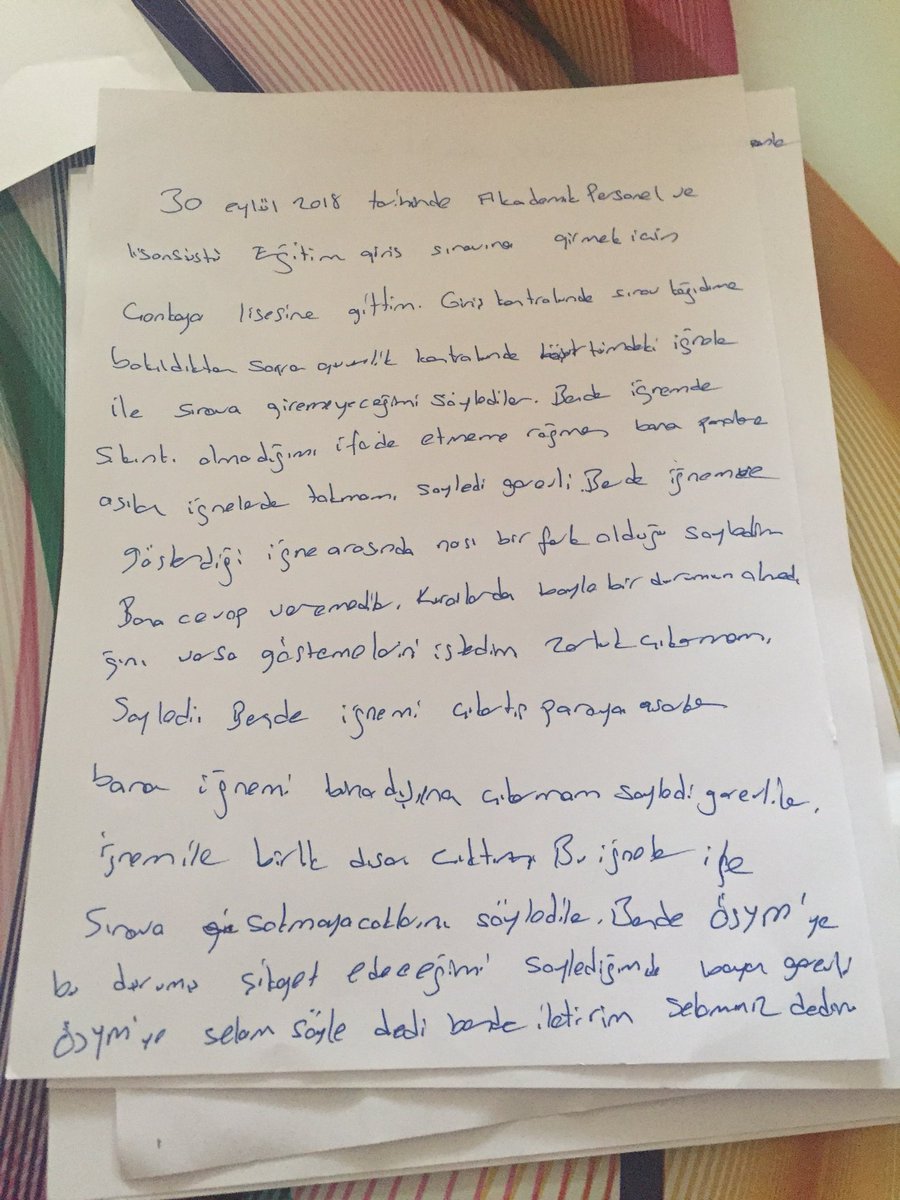 30 eylül 2018 tarihinde Akademik Personel ve
lisansüstü Eğitim giriş sınavına girmek için
Çankaya lisesine gittim. Giriş kontrolünde sınav kağıdıma
bakıldıktan sonra güvenlik kontrolünde iğnele
ile sınava giremeyeceğimi söylediler. Bende iğnemde
sıkıntı olmadığını ifade etmeme rağmen bana
asılı iğnelerde takmamı söyledi görevli. Bende iğnemle
gösterdiği iğne arasında nasıl bir fark olduğu söyledim
Bana cevap veremedile. Kurallarda böyle bir durumun olmadı
ğını varsa göstemelerini istedim zorluk çıkarmamı
Söyledi. Bende iğnemi çıkartıp
bana iğnemi bina dışına çıkarmam söyledi görevlile.
iğnem ile birlik dışarı çıktım Bu iğnele ile
Sınava sokmayacaklarını söyledile. Bende ÖSYM'ye
bu durumu şikayet edeceğimi söylediğimde bayan görevli
ÖSYM'ye selam söyle dedi bende iletirim selamınız dedim